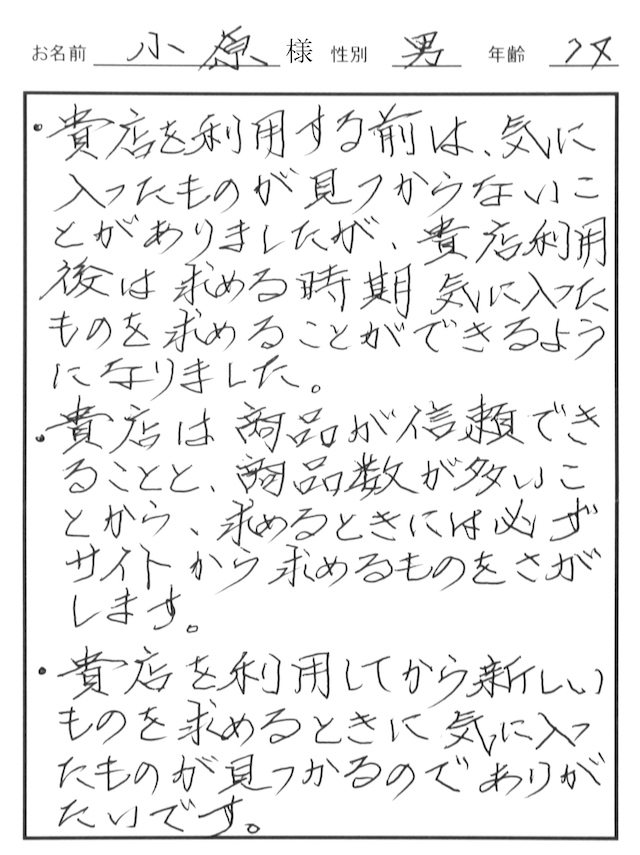 お名前 小原 様 性別 男 年齢
・貴店を利用する前は、気に
入ったものが見つからないこ
とがありましたが、貴店利用
後は求める時期気に入った
ものを求めることができるよう
になりました。
・貴店は商品が信頼でき
ることと、商品数が多いこ
とから、求めるときには必ず
サイトから求めるものをさが
します。
・貴店を利用してから新しい
ものを求めるときに気に入っ
たものが見つかるのでありが
たいです。